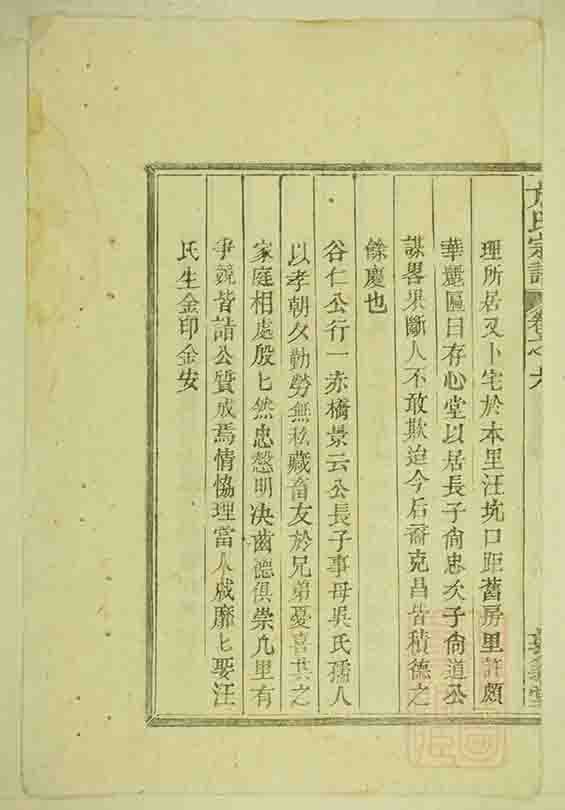 氏宗譜 卷之六
理所居又卜宅於本里汪坑口距舊房里許頗
華麗匾曰存心堂以居長子尙忠次子尙道公
謀畧果斷人不敢欺迨今后裔克昌皆積德之
餘慶也
谷仁公行一赤橋景云公長子事母吳氏孺人
以孝朝夕勤勞無私藏畜友於兄弟憂喜共之
家庭相處殷匕然忠慤明决齒德俱崇凢里有
爭競皆詰公質成焉情恊理當人咸靡匕娶汪
氏生金印金安